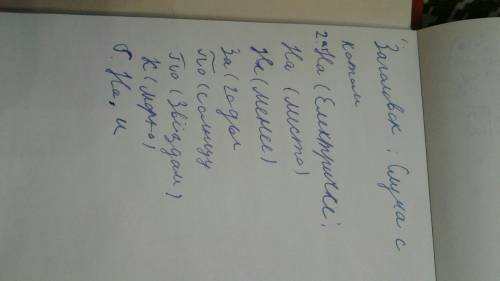 Заголовок: Случа с
котом
2 На (Електричке.
На (место)
Не (менее)
За (годы
По (солнцу
По (Звёздам)
К (морю)
Г. На, и